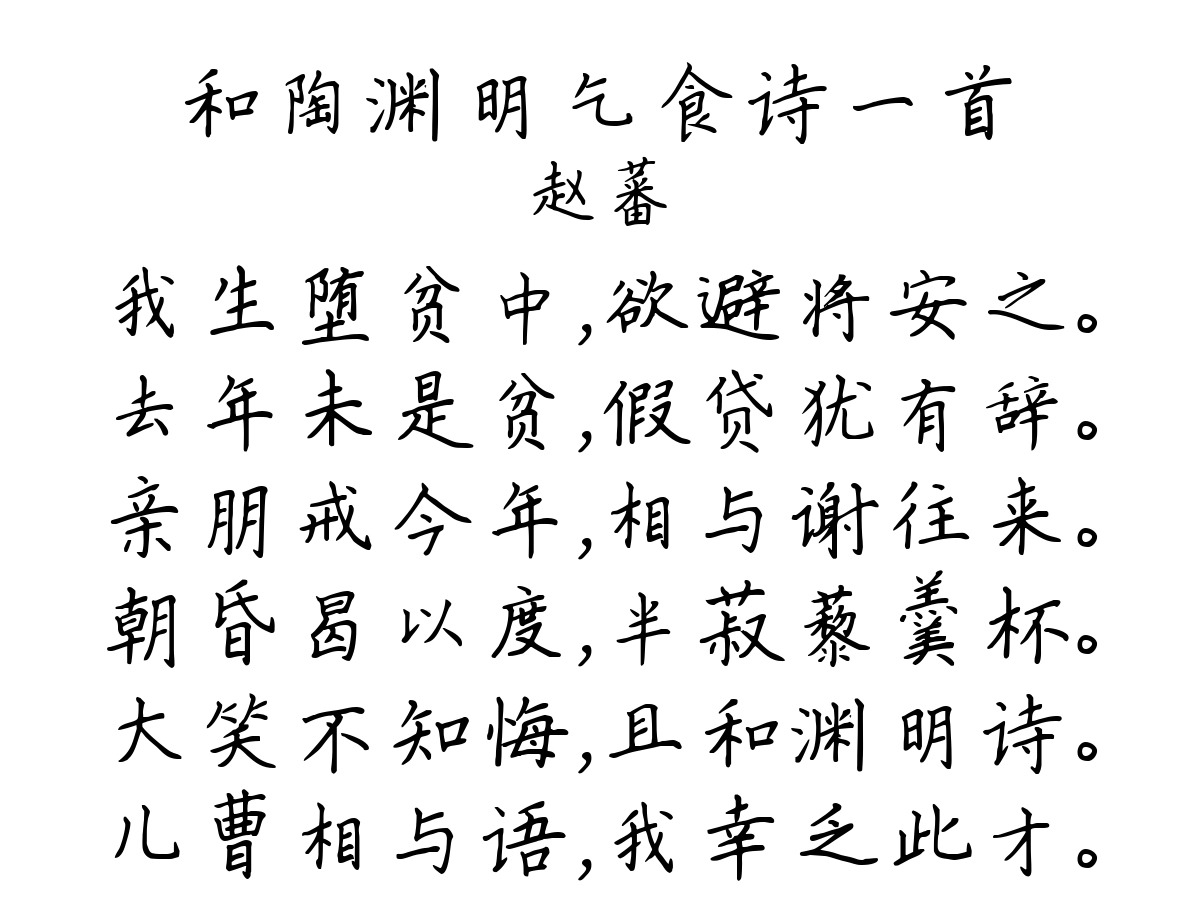 和陶渊明乞食诗一首
赵蕃
我生堕贫中,欲避将安之。
去年未是贫,假贷犹有辞。
亲朋戒今年,相与谢往来。
朝昏曷以度,半菽藜羹杯。
大笑不知悔,且和渊明诗。
儿曹相与语,我幸乏此才。